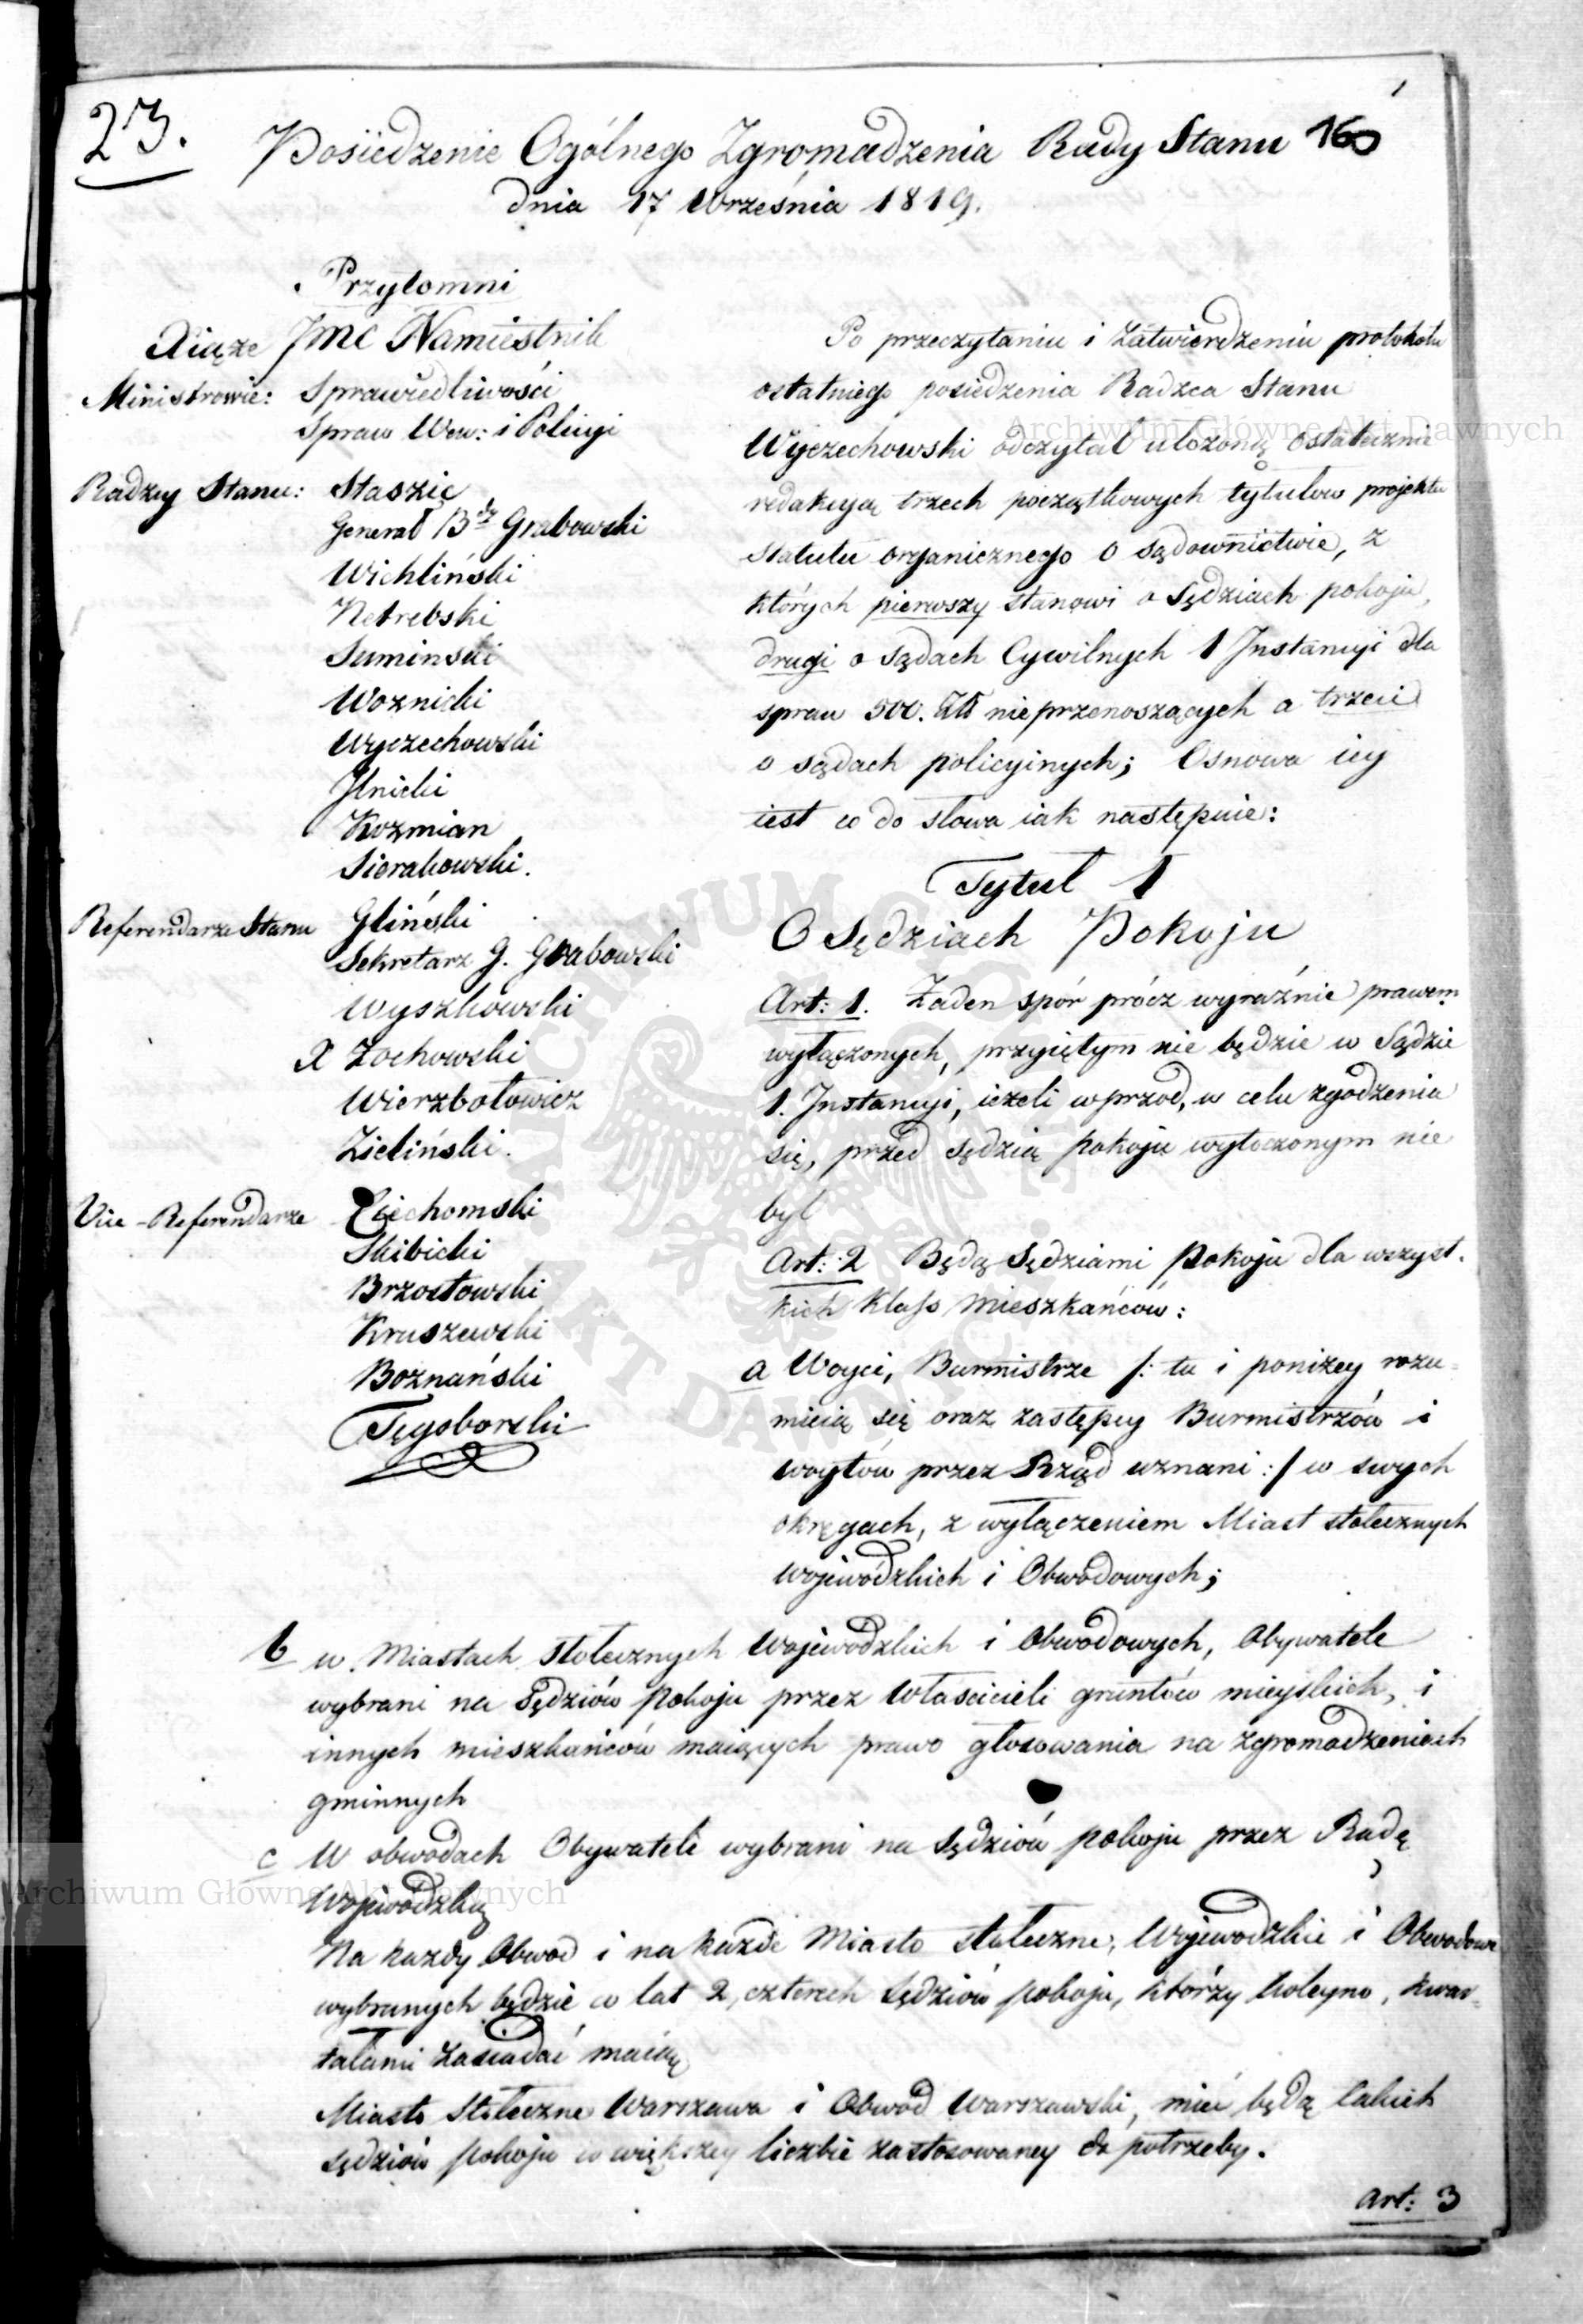 23.
160
Posiedzenie Ogólnego Zgromadzenia Rady Stanu
dnia 17 Września 1819.
Przytomni
Xiąże Jmc Namiestnik
Ministrowie: Sprawiedliwości
Spraw Wew: i Policyi
Radzcy Stanu: Staszic
Generał Grabowski
Wichliński
Netrebski
Suminski
Woznicki
Wyczechowski
Jlnicki
Kozmian
Sierakowski.
Referendarze Stanu Gliński
Sekretarz J. Grabowski
Wyszkowski
X Zochowski
Wierzbołowicz
Zieliński.
Vice-Referendarze Ciechomski
Skibicki
Brzostowski
Kruszewski
Boznański
Tęgoborski
Po przeczytaniu i zatwierdzeniu protokołu
ostatniego posiedzenia Radzca Stanu
Wyczechowski odczytał ułożoną ostatecznie
redakcyą trzech początkowych tytułów projektu
statutu organicznego o sądownictwie, z
których pierwszy stanowi o Sędziach pokoju,
drugi o sądach Cywilnych 1 Jnstancyi dla
spraw 500. Złł nieprzenoszących a trzeci
o sądach policyinych; Osnowa iey
iest co do słowa iak następuie:
Tytuł 1
O Sędziach Pokoju
Art: 1. Żaden spór prócz wyraźnie prawem
wyłączonych, przyiętym nie będzie w Sądzie
1. Jnstancyi, ieżeli wprzod, w celu zgodzenia
się, przed Sędzią pokoju wytoczonym nie
był
Art: 2 Będą Sędziami Pokoju dla wszyst-
kich klass mieszkańców:
a Woyci, Burmistrze /: tu i poniżey rozu-
mieią się oraz zastępcy Burmistrzów i
woytów przez Rząd uznani :/ w swych
okręgach, z wyłączeniem Miast stołecznych
wojewódzkich i Obwodowych;
b w Miastach stołecznych Wojewodzkich i Obwodowych, Obywatele
wybrani na Sędziów Pokoju przez właścicieli gruntów mieyskich, i
innych mieszkańców maiących prawo głosowania na zgromadzeniach
gminnych
c W obwodach Obywatele wybrani na Sędziów pokoju przez Radę
Wojewódzką
Na każdy Obwod i na każde Miasto stołeczne, Wojewodzkie i Obwodowe
wybranych będzie co lat 2, czterech Sędziów pokoju, którzy koleyno, kwar-
tałami zasiadać maią
Miasto Stołeczne Warszawa i Obwód Warszawski, mieć będą takich
sędziów pokoju w większey liczbie zastosowaney do potrzeby.
Art: 3
Archiwum Główne Akt Dawnych
Archiwum Główne Akt Dawnych